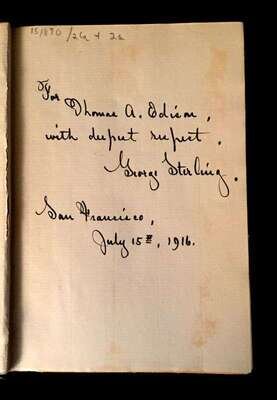 151890 / 26 + 2a
For Thomas A. Edison,
with deepest respect.
George Sterling.
San Francisco,
July 15th, 1916.